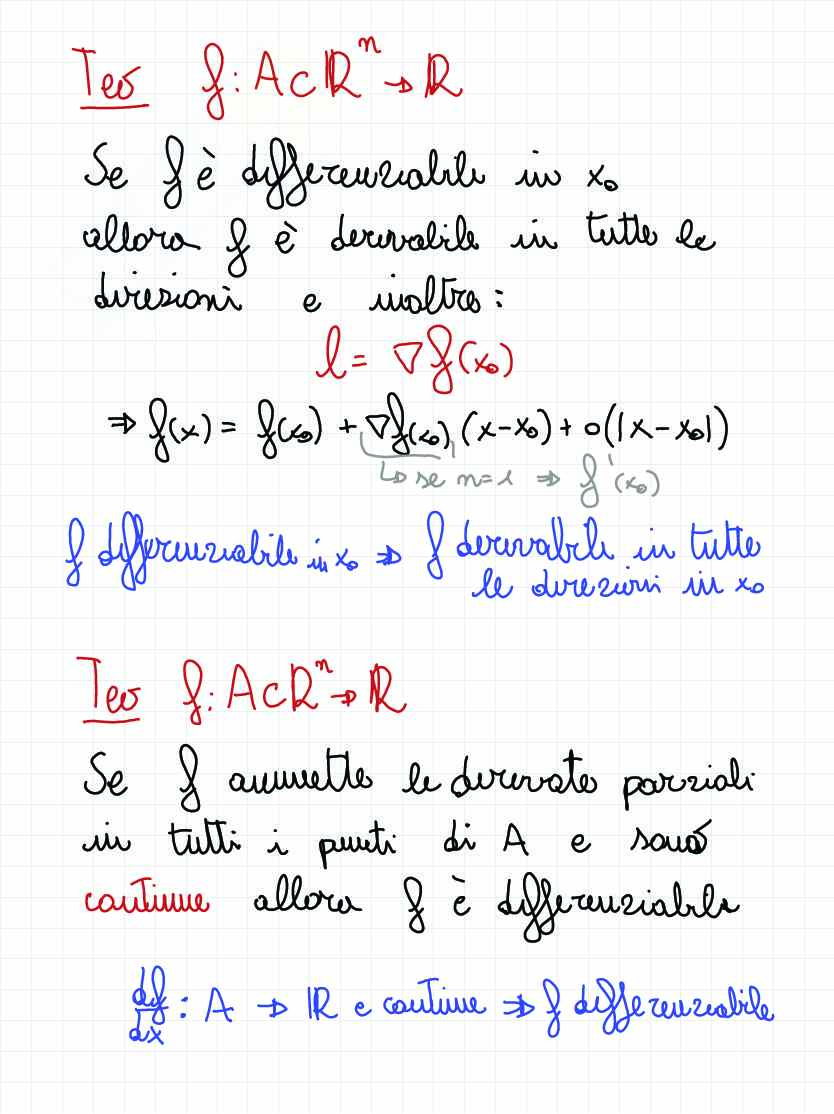 Teo f: A⊂ℝⁿ→ℝ
Se f è differenziabile in x₀
allora f è derivabile in tutte le
direzioni e inoltre:
l = ∇f(x₀)
⇒ f(x) = f(x₀) + ∇f(x₀) (x-x₀) + o(|x-x₀|)
↳ se n=1 ⇒ f'(x₀)
f differenziabile in x₀ ⇒ f derivabile in tutte
le direzioni in x₀
Teo f: A⊂ℝⁿ→ℝ
Se f ammette le derivate parziali
in tutti i punti di A e sono
continue allora f è differenziabile
df/dx : A → ℝ e continue ⇒ f differenziabile